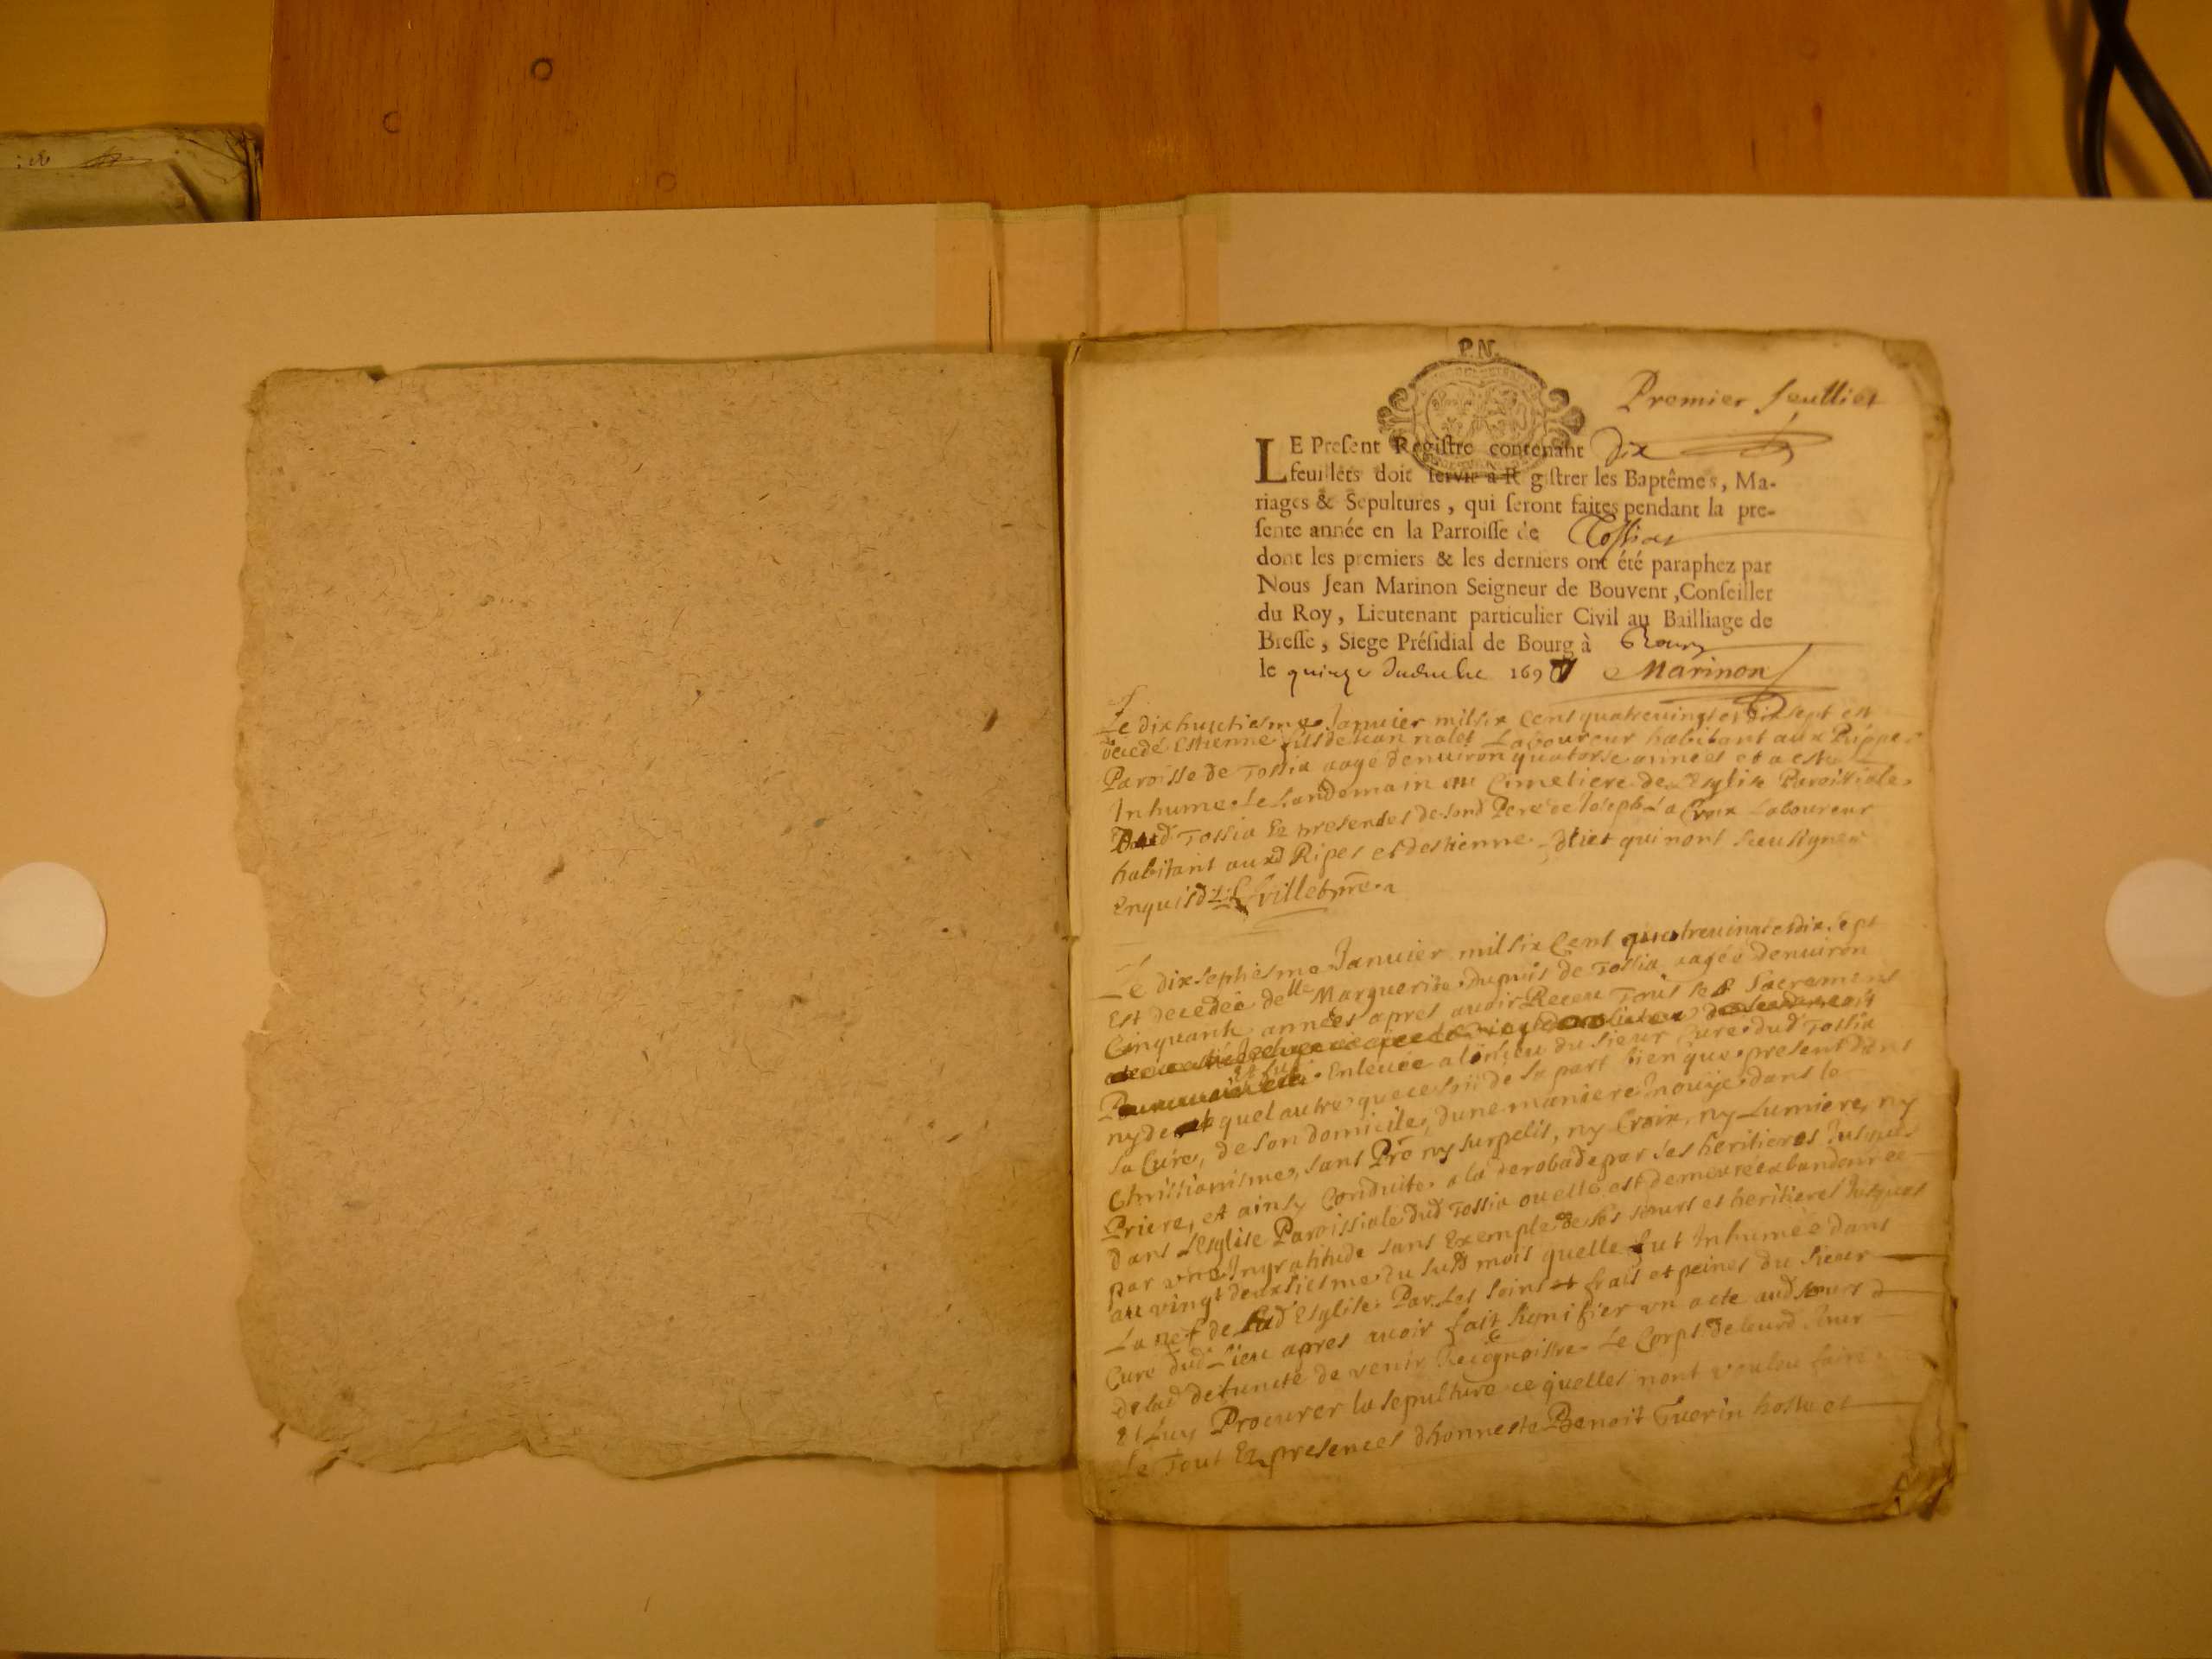 P.N.
Premier feulliet
LE Preſent Regiſtre contenant dix
feuillets doit ſervir à R giſtrer les Baptêmes, Ma-
riages & Sepultures, qui ſeront faites pendant la pre-
ſente année en la Parroiſſe de Toſſiat
dont les premiers & les derniers ont été paraphez par
Nous Jean Marinon Seigneur de Bouvent, Conſeiller
du Roy, Lieutenant particulier Civil au Bailliage de
Breſſe, Siege Préſidial de Bourg à Bourg
le quinze 169 Marinon
Le dixhuictiesme Januier mil six Cent quatreuingt et dix sept est
decedé Estienne fils de Jean nalet Laboureur habitant aux Rippes
Paroisse de Tossia aagé denuiron quatorse années et a esté
Inhume le Landemain au Cimetiere de L'Esglise Paroissiale
Dud Tossia Ez presences de sond Pere de Joseph La Croix Laboureur
habitant auxd Ripes et destienne qui nont sceu signer
Enquis villet pre
Le dixseptiesme Januier mil six Cent quatreuingt et dix sept
Est decedée delle Marguerite Dupuis de Tossia aagée denuiron
Cinquante années apres auoir Receu Tous les Sacrements
et fut Enleuée a lorsceu du sieur Cure dud Tossia
ny de quel autre que ce soit de sa part bien que present dans
sa Cure, de son domicile, dune maniere Inouye dans le
Christianisme, sans Pre ny surpelis, ny Croix, ny Lumiere, ny
Priere, et ainsy Conduite a la derobade par ses heritieres Jusques
dans L'Esglise Paroissiale dud Tossia ou elle est demeurée abandonnée
par vne Ingratitude sans Exemple de ses soeurs et heritieres Jusques
au vingt deuxiesme du susd mois quelle fut Inhumée dans
La nef de Lad Esglise Par Les soins et frais et peines du sieur
Cure dud Lieu apres auoir fait signifier vn acte aud soeurs d
de lad defuncte de venir Recognoistre Le Corps de leurd soeur
et Luy Procurer la sepulture ce quelles nont voulcu faire
Le Tout Ez presences dhonneste Benoit Guerin hoste et